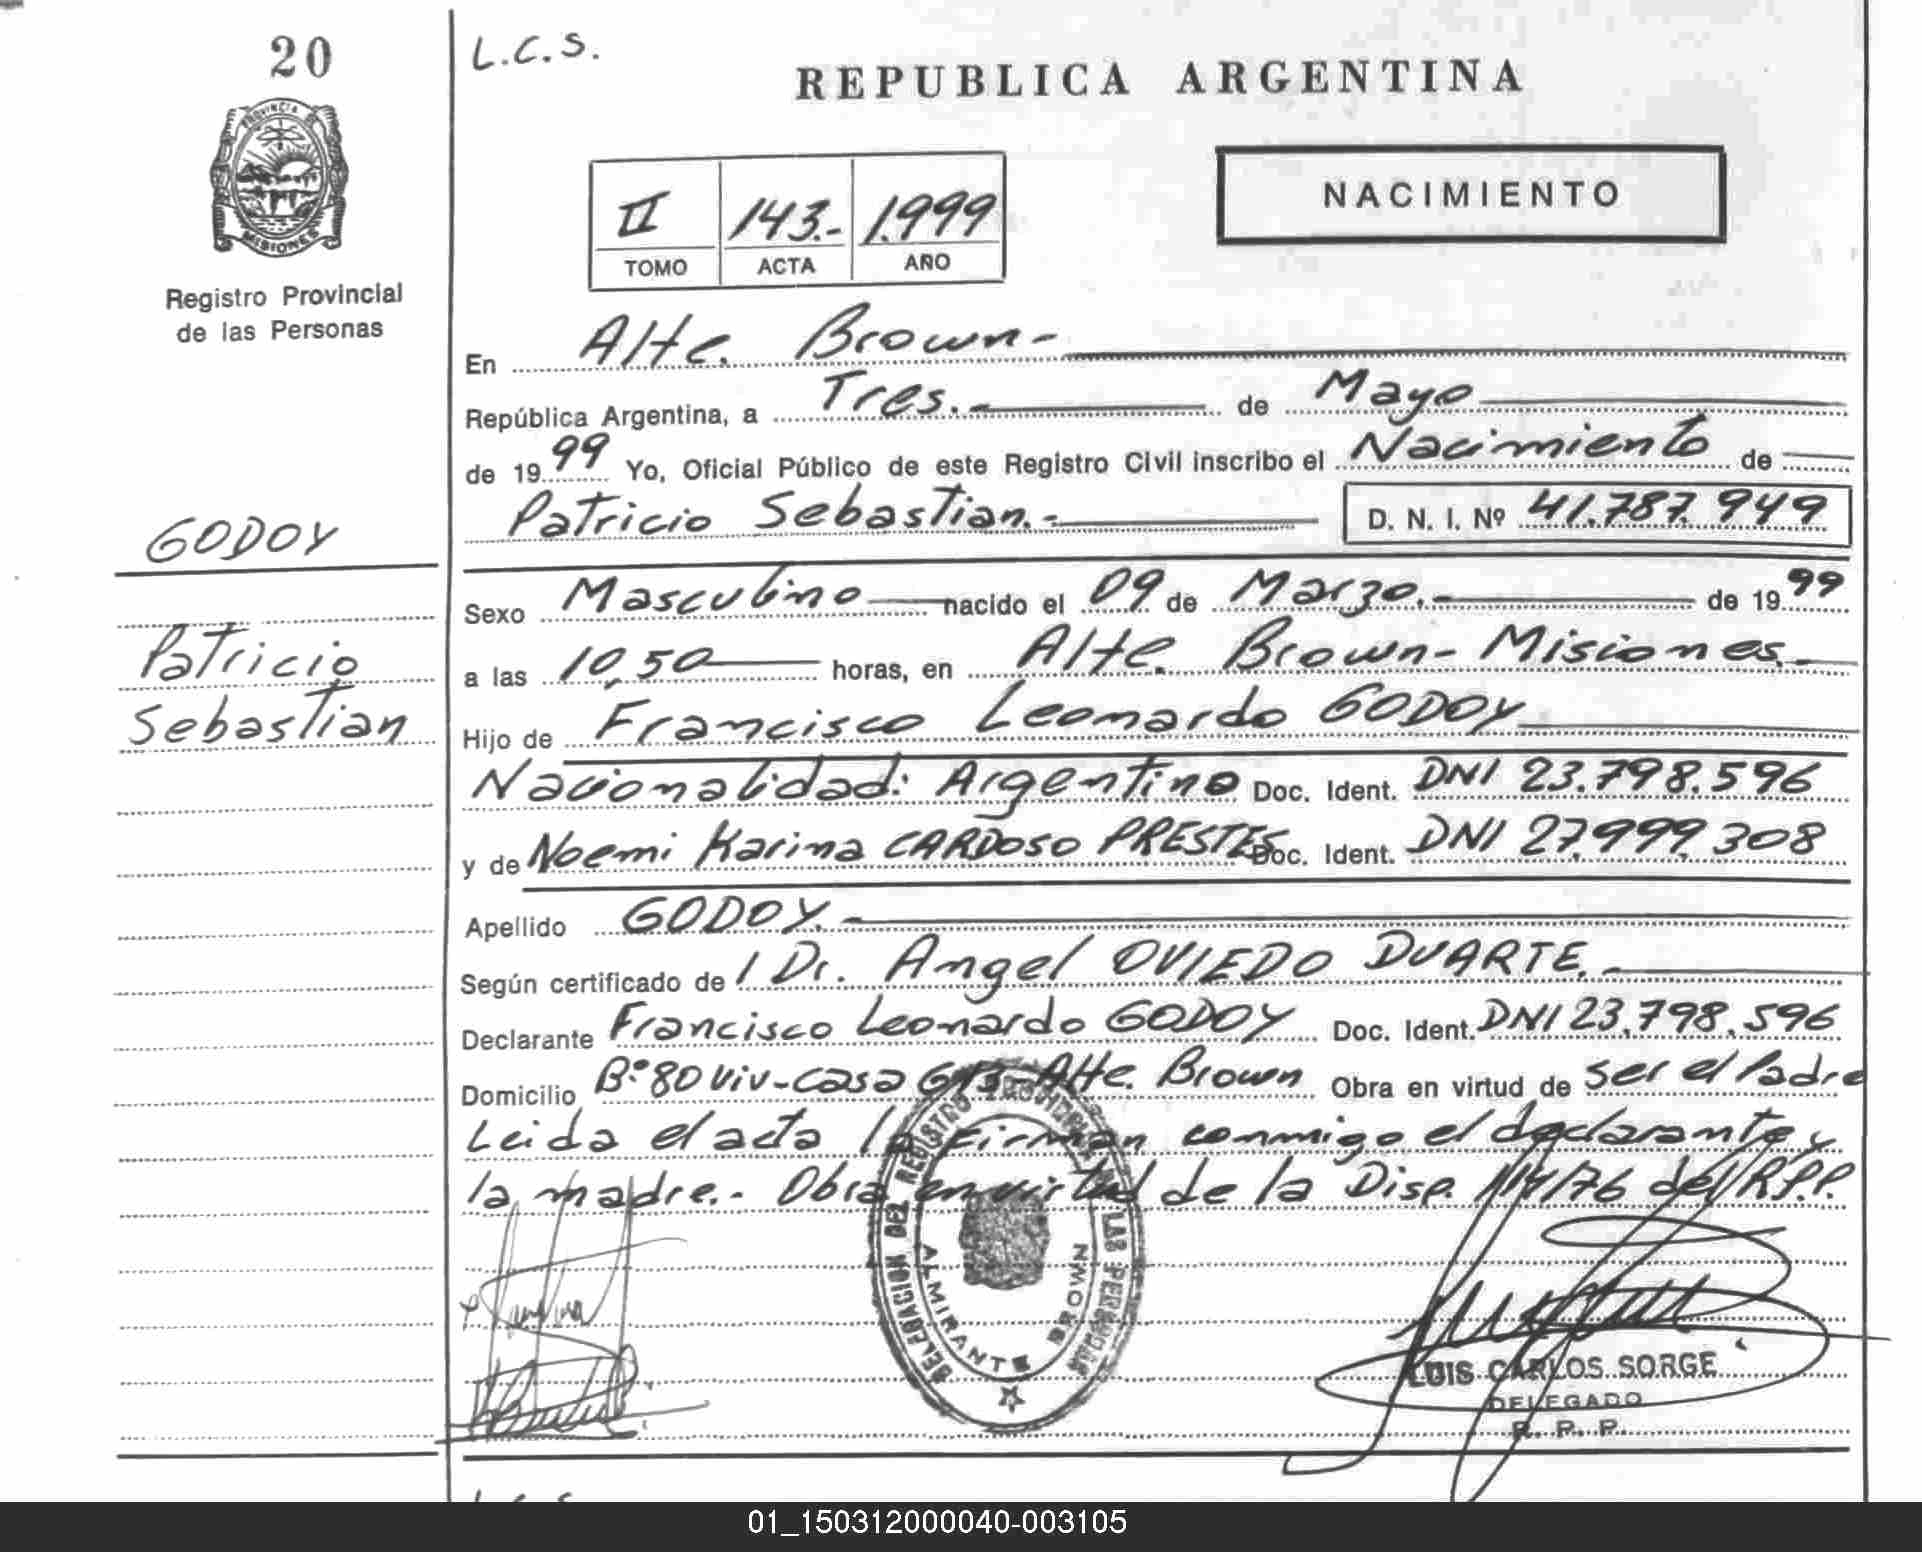 20
L.C.S.
REPUBLICA ARGENTINA
PROVINCIA DE
MISIONES
Registro Provincial
de las Personas
II 143.- 1.999
TOMO ACTA AÑO
NACIMIENTO
En Alte. Brown-
República Argentina, a Tres.- de Mayo
de 1999 Yo, Oficial Público de este Registro Civil inscribo el Nacimiento de
Patricio Sebastian.- D. N. I. Nº 41.787.949
GODOY
Patricio
Sebastian
Sexo Masculino nacido el 09 de Marzo.- de 1999
a las 10,50 horas, en Alte. Brown- Misiones.-
Hijo de Francisco Leonardo GODOY
Nacionalidad: Argentino Doc. Ident. DNI 23.798.596
y de Noemi Karina CARDOSO PRESTES Doc. Ident. DNI 27.999.308
Apellido GODOY.-
Según certificado de / Dr. Angel OVIEDO DUARTE.-
Declarante Francisco Leonardo GODOY Doc. Ident. DNI 23.798.596
Domicilio Bº 80 Viv-Casa Alte. Brown Obra en virtud de ser el Padre
Leida el acta la Firman conmigo el declarante y
la madre.- Obra en virtud de la Disp. del R.P.P.
DELEGACION DEL REGISTRO PROVINCIAL DE LAS PERSONAS
ALMIRANTE BROWN
LUIS CARLOS SORGE
DELEGADO
R. P. P.
01_150312000040-003105